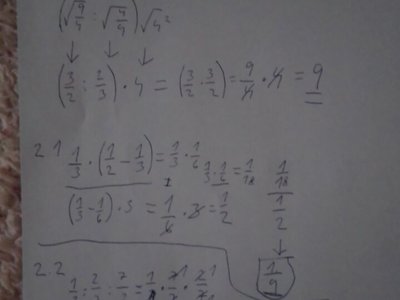 (√9/4 : √4/9) √4²
↓ ↓ ↓
(3/2 : 2/3) · 4 = (3/2 · 3/2) = 9/4 · 4 = 9
2.1 1/3 · (1/2 - 1/3) = 1/3 · 1/6
1/3 · 1/6 = 1/18
(1/3 - 1/6) · 3 = 1/6 · 3 = 1/2
1/18
1/2
↓
1/9
2.2